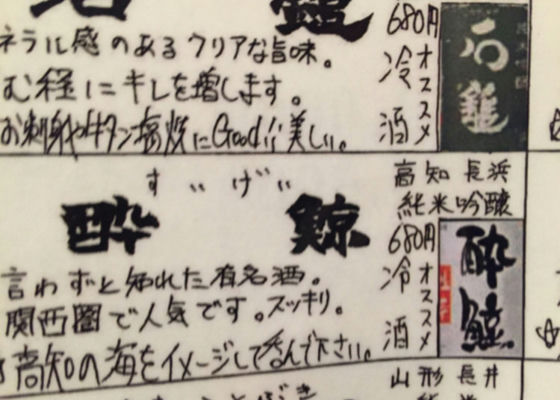 石鎚
680円
ネラル感のあるクリアな旨味。
冷酒
オススメ
む経にキレを増します。
お刺身や牛タン塩焼にGood!!美しい。
石鎚
高知 長浜
純米吟醸
すいげい
酔鯨
680円
冷酒
オススメ
言わずと知れた有名酒。
関西圏で人気です。スッキリ。
高知の海をイメージして呑んで下さい。
酔鯨
山形 長井